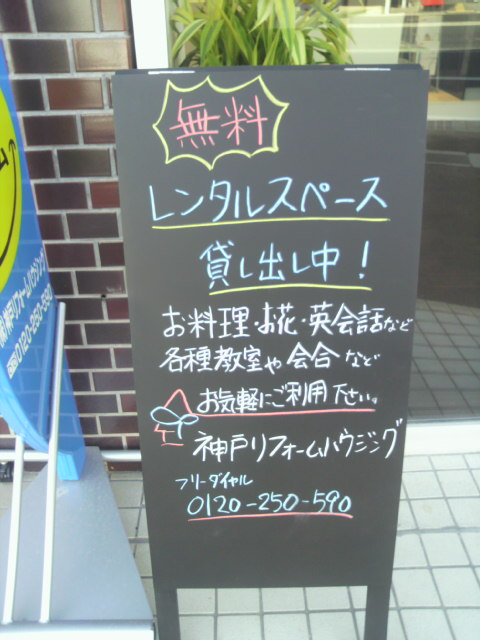 無料
レンタルスペース
貸し出し中!
お料理・お花・英会話など
各種教室や会合など
お気軽にご利用下さい。
神戸リフォームハウジング
フリーダイヤル
0120-250-590
神戸リフォームハウジング
0120-250-590